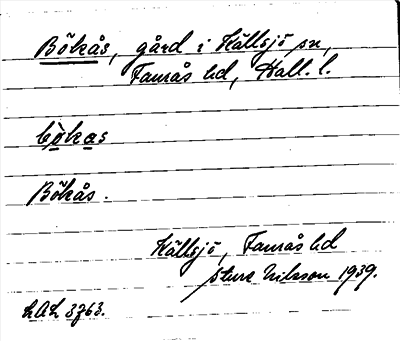 Bökås, gård i Källsjö sn,
Faurås hd, Hall. l.
bö̀kas
Bökås.
Källsjö, Faurås hd
Sture Nilsson 1939.
LAL 3763.